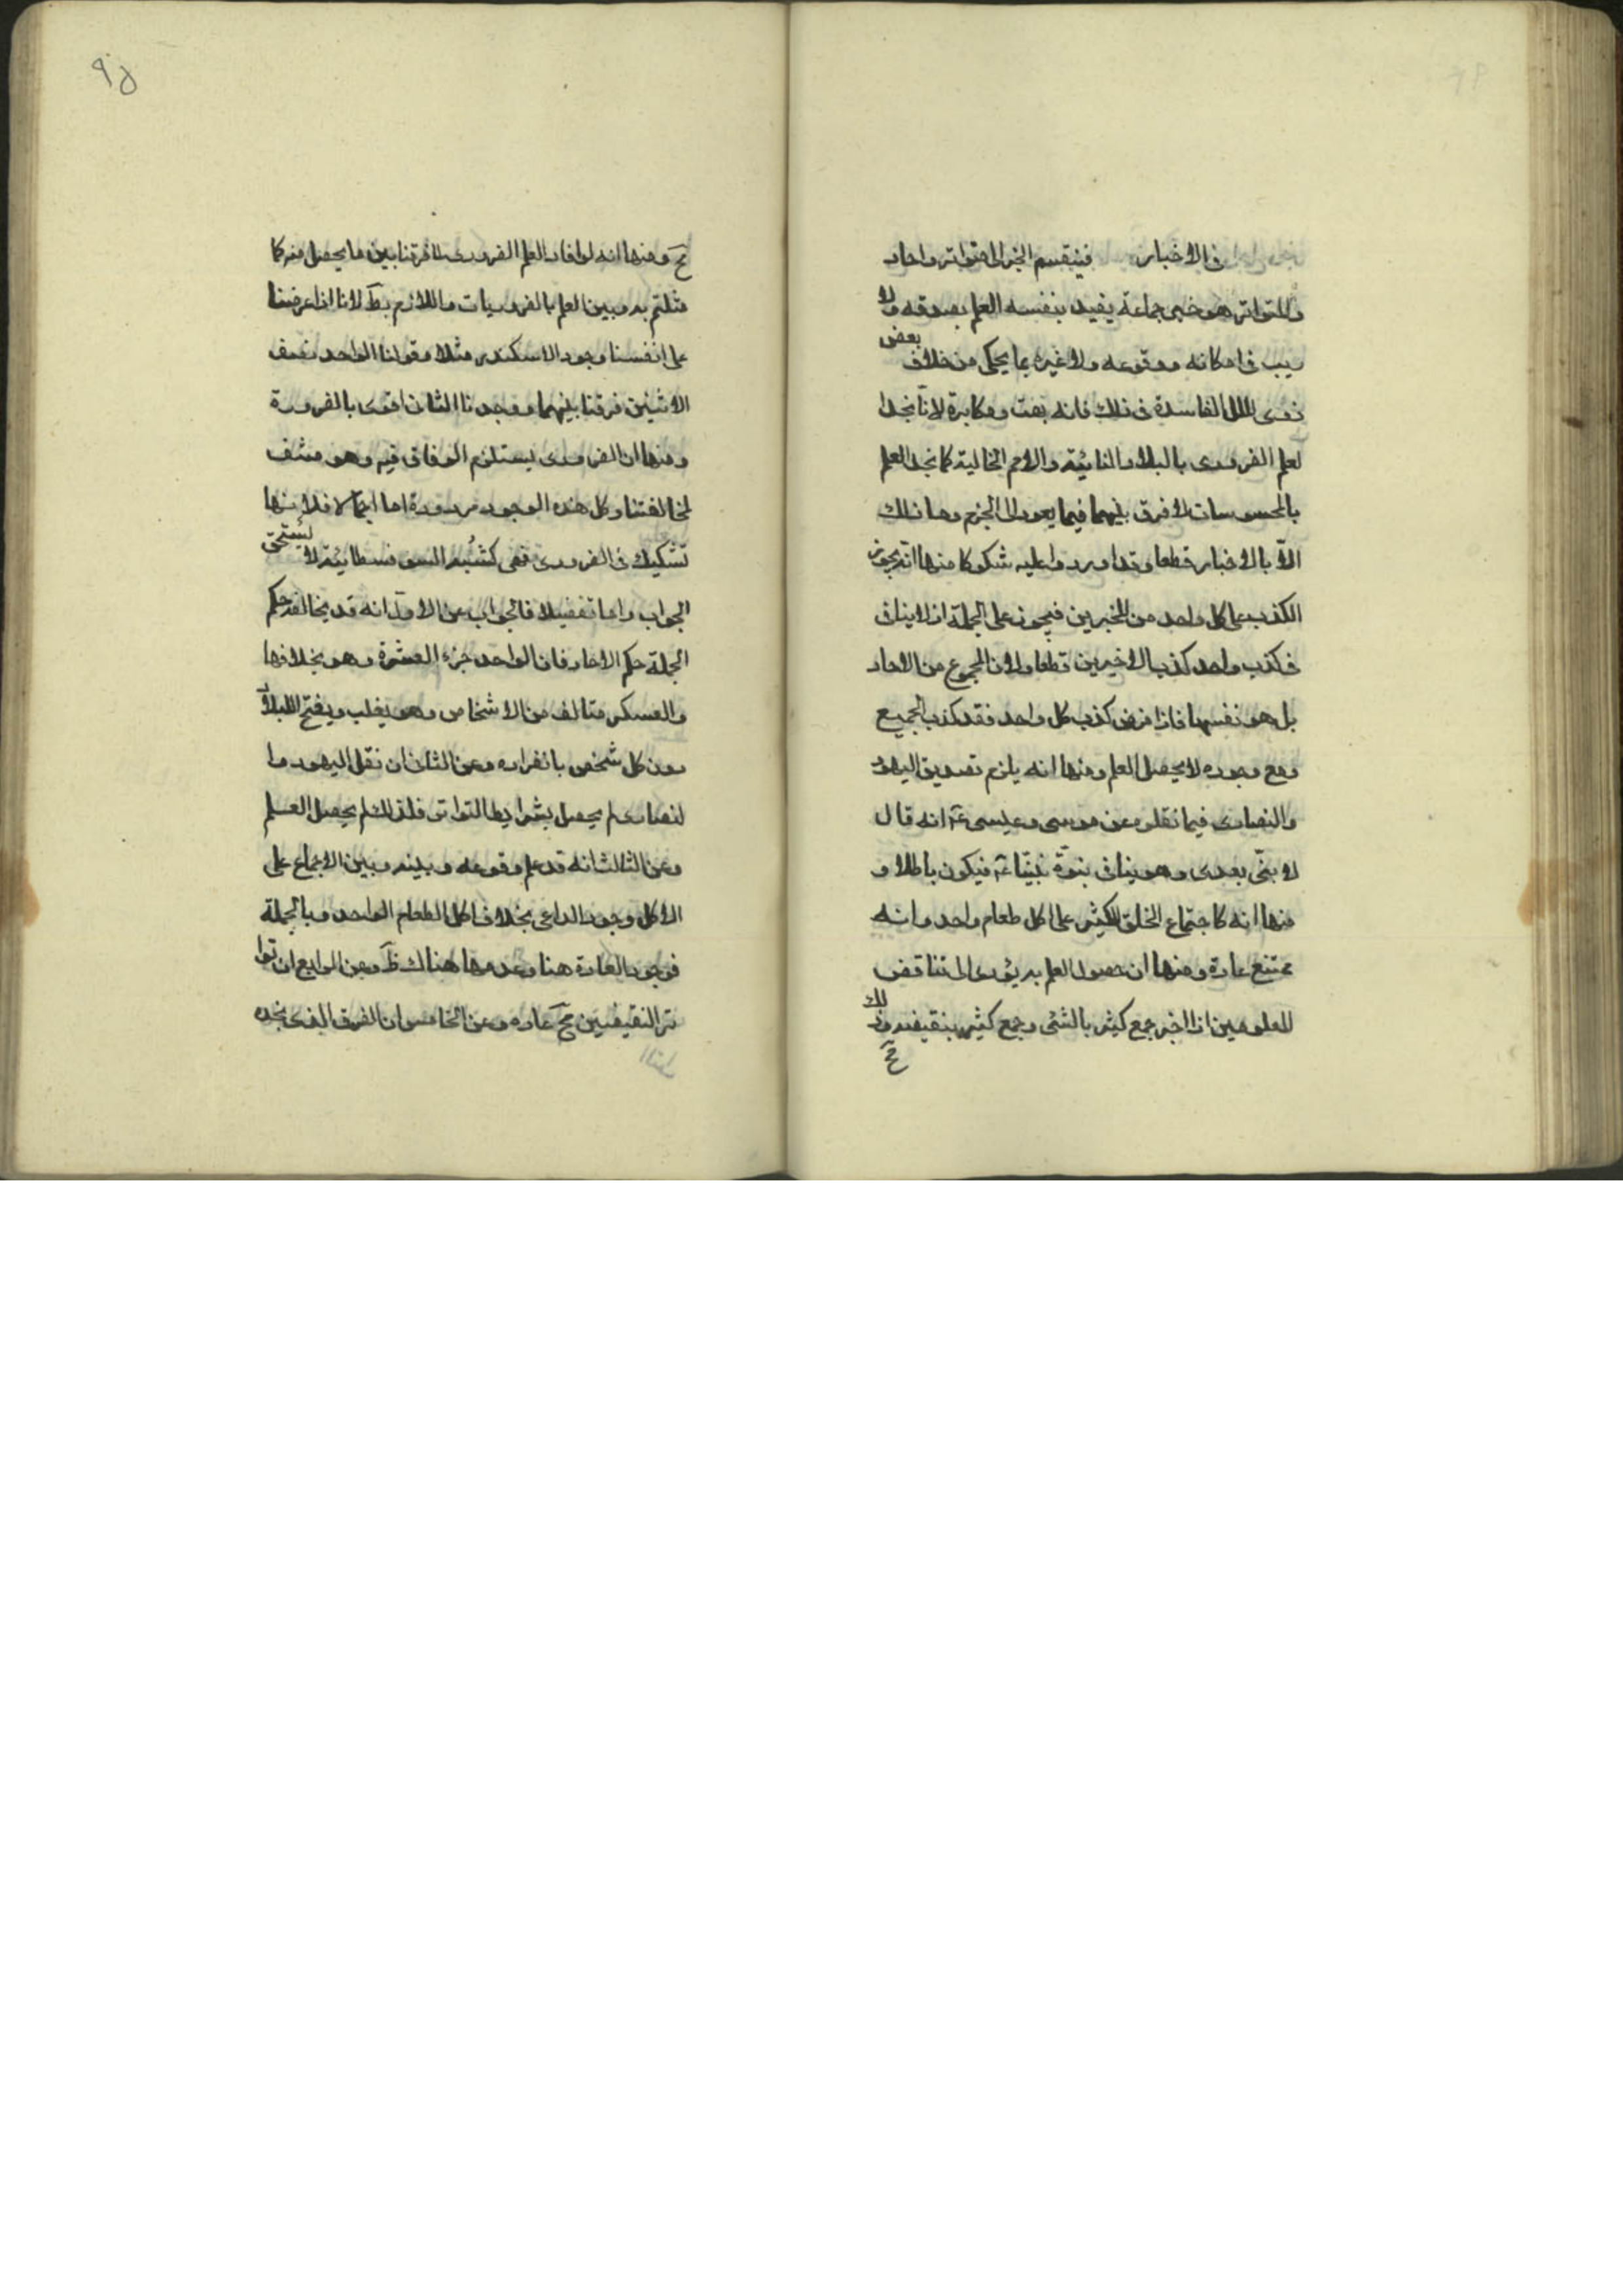 في الاخبار فينقسم الخبر الى متواتر واحاد
والمتواتر هو خبر جماعة يفيد بنفسه العلم بصدقه ولا
ريب في امكانه ووقوعه ولا غيره بما يحكى من خلاف بعض
ذوى الملل الفاسدة في ذلك فانه بهت ومكابرة لانا نجد ا
لعلم الضرورى بالبلاد النائية والامم الخالية كما نجد العلم
بالمحسوسات لا فرق بينهما فيما يعود الى الجزم وما ذلك
الا بالاخبار قطعا وقد اوردوا عليه شكوكا منها انه يجوز
الكذب على كل واحد من المخبرين فيجوز على الجملة اذ لا ينافى
في كذب واحد كذب الاخيرين قطعا ولان المجموع من الاحاد
بل هو نفسها فاذا فرض كذب كل واحد فقد كذب الجميع
ومع وجوده لا يحصل العلم ومنها انه يلزم تصديق اليهود
والنصارى فيما نقلوه عن موسى وعيسى عۤ انه قال
لا نبى بعدى وهو ينافى نبوة نبينا عۤ فيكون باطلا و
منها انه كاجتماع الخلق الكثير على اكل طعام واحد وانه
ممتنع عادة ومنها ان حصول العلم به يؤدى الى تناقض
المعلومين اذا اخبر جمع كثير بالشئ وجمع كثير بنقيضه وذلك
مح
۹۵
مح ومنها انه لو افاد العلم الضرورى لما فرقنا بين ما يحصل منه كا
مثلتم به وبين العلم بالضروريات واللازم بط لانا اذا عرضنا
على انفسنا وجود الاسكندر مثلا وقولنا الواحد نصف
الاثنين فرقنا بينهما ووجدنا الثانى اقوى بالضرورة
ومنها ان الضرورى يستلزم الوفاق فيه وهو منتف
لمخالفتنا وكل هذه الوجوه مردودة اما اجمالا فلانها
تشكيك في الضرورى فهى كشبه السوفسطائية لا يستحق
الجواب واما تفصيلا فالجواب عن الاول انه قد يخالف حكم
الجملة حكم الاحاد فان الواحد جزء العشرة وهو بخلافها
والعسكر متالف من الاشخاص وهو يغلب ويفتح البلاد
دون كل شخص بانفراده وعن الثانى ان نقل اليهود وا
لنصارى لم يحصل بشرايط التواتر فلذلك لم يحصل العلم
وعن الثالث انه قد علم وقوعه وبينه وبين الاجماع على
الاكل وجود الداعى بخلاف اكل الطعام الواحد وبالجملة
فوجود العادة هنا وعدمها هناك ظ وعن الرابع ان توا
تر النقيضين مح عادة وعن الخامس ان الفرق الذى نجده